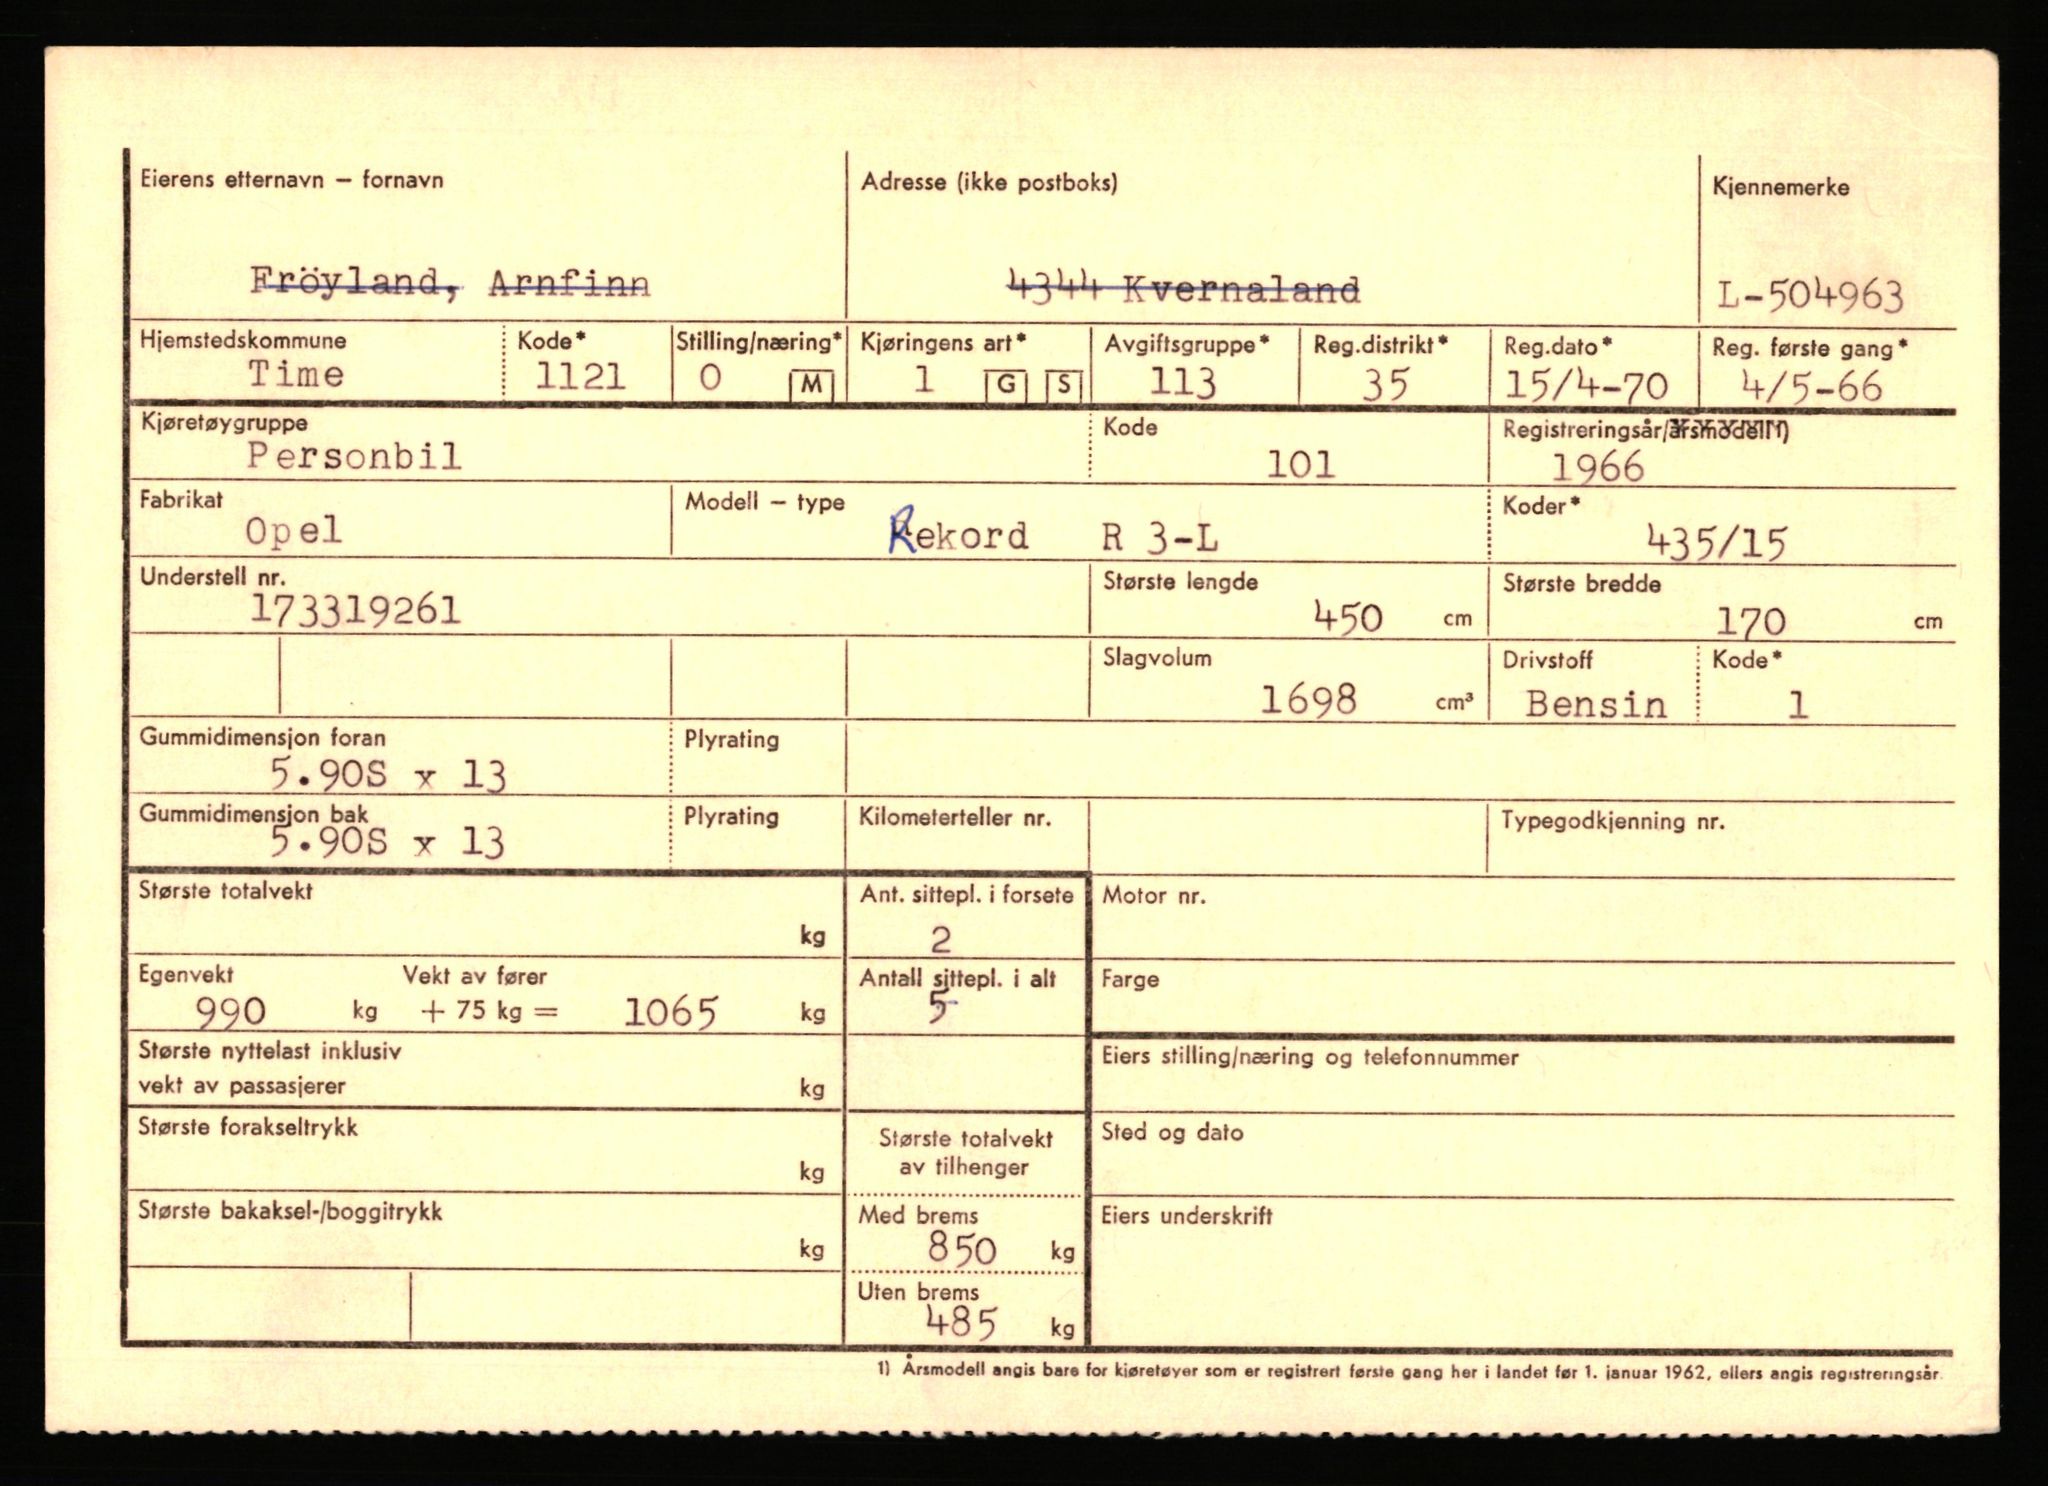 Eierens etternavn – fornavn
Adresse (ikke postboks)
Kjennemerke
Fröyland, Arnfinn
4344 Kvernaland
L-504963
Hjemstedskommune
Kode*
Stilling/næring*
Kjøringens art*
Avgiftsgruppe*
Reg.distrikt*
Reg.dato*
Reg. første gang*
Time
1121
0
M
1
G
S
113
35
15/4-70
4/5-66
Kjøretøygruppe
Kode
Registreringsår/årsmodell1)
Personbil
101
1966
Fabrikat
Modell – type
Koder*
Opel
Rekord R 3-L
435/15
Understell nr.
Største lengde
Største bredde
173319261
450 cm
170 cm
Slagvolum
Drivstoff
Kode*
1698 cm³
Bensin
1
Gummidimensjon foran
Plyrating
5.90S x 13
Gummidimensjon bak
Plyrating
Kilometerteller nr.
Typegodkjenning nr.
5.90S x 13
Største totalvekt
kg
Ant. sittepl. i forsete
2
Motor nr.
Egenvekt
Vekt av fører
990 kg + 75 kg = 1065 kg
Antall sittepl. i alt
5
Farge
Største nyttelast inklusiv
vekt av passasjerer
kg
Eiers stilling/næring og telefonnummer
Største forakseltrykk
kg
Største totalvekt
av tilhenger
Sted og dato
Største bakaksel-/boggitrykk
kg
Med brems
850 kg
Eiers underskrift
Uten brems
485 kg
1) Årsmodell angis bare for kjøretøyer som er registrert første gang her i landet før 1. januar 1962, ellers angis registreringsår.